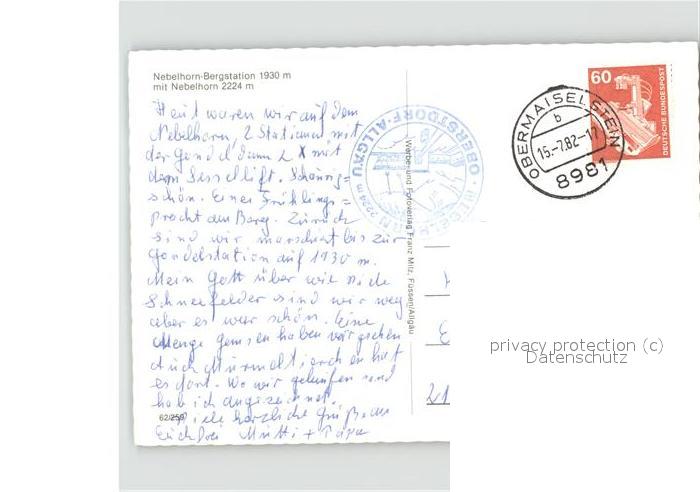 Nebelhorn-Bergstation 1930 m
mit Nebelhorn 2224 m
Heut waren wir auf dem
Nebelhorn, 2 Stationen mit
der Gondel dann 2 X mit
dem Sessellift. Schaurig=
schön. Eine Frühlings=
pracht am Berg. Zurück
sind wir marschiert bis zur
Gondelstation auf 1930 m.
Mein Gott über wie viele
Schneefelder sind wir weg
aber es war schön. Eine
Menge Gemsen haben wir gesehen
Auch Murmeltierchen hat
es dort. Wo wir gelaufen sind
hab ich angezeichnet.
Viele herzliche Grüße an
Euch drei Mutti + Papa
62/259
OBERSTDORF·ALLGÄU
NEBELHORN 2224 m
Werbe- und Fotoverlag Franz Milz, Füssen/Allgäu
OBERMAISELSTEIN
b
15.-7.82-17
8981
60
DEUTSCHE BUNDESPOST
21
privacy protection (c)
Datenschutz